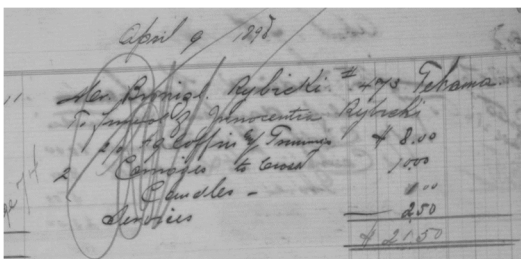 April 9 1898
11 Mr. Bronisl. Rybicki # 473 Tekama
To Funeral of Innocentia Rybicki
Coffin & Trimmings $ 8.00
2 Carriages to 10.00
Candles - 1.00
Services 2.50
$ 21.50